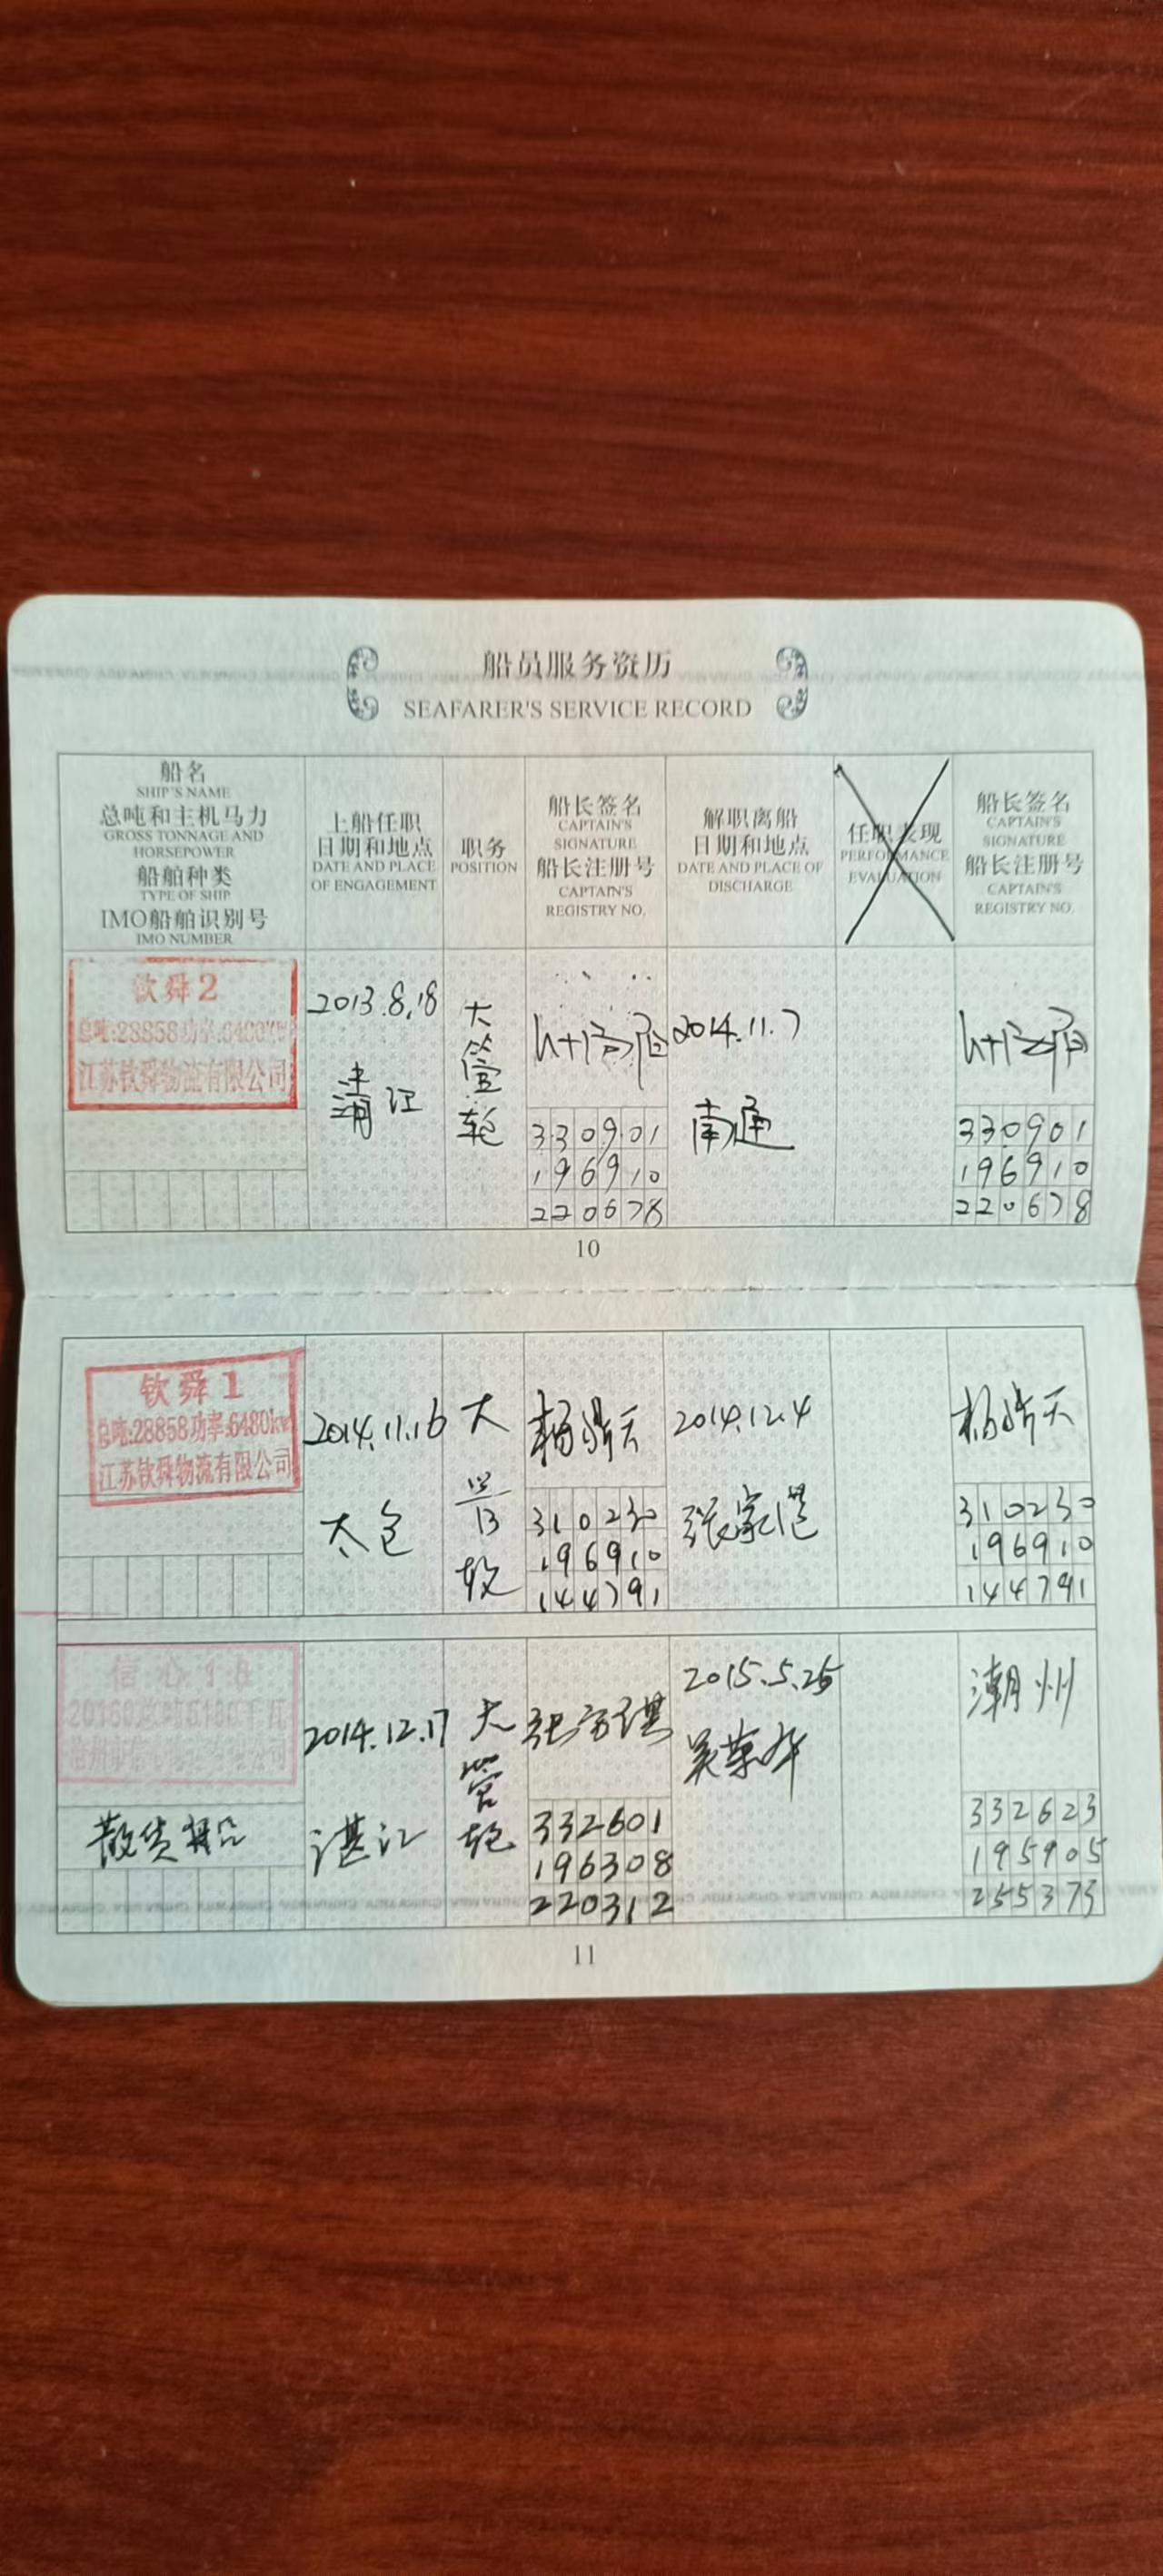 船员服务资历
SEAFARER'S SERVICE RECORD
船名
SHIP'S NAME
总吨和主机马力
GROSS TONNAGE AND
HORSEPOWER
船舶种类
TYPE OF SHIP
IMO船舶识别号
IMO NUMBER
上船任职
日期和地点
DATE AND PLACE
OF ENGAGEMENT
职务
POSITION
船长签名
CAPTAIN'S
SIGNATURE
船长注册号
CAPTAIN'S
REGISTRY NO.
解职离船
日期和地点
DATE AND PLACE OF
DISCHARGE
任职表现
PERFORMANCE
EVALUATION
船长签名
CAPTAIN'S
SIGNATURE
船长注册号
CAPTAIN'S
REGISTRY NO.
钦舜2
总吨:28858功率:6480kw
江苏钦舜物流有限公司
2013.8.18
江
大
管
轮
330901
196910
220678
2014.11.7
南通
330901
196910
220678
10
钦舜1
总吨:28858功率:6480kw
江苏钦舜物流有限公司
2014.11.16
太仓
大
管
轮
杨 天
310230
196910
144791
2014.12.4
张家港
杨 天
310230
196910
144791
信心
散货船
2014.12.17
湛江
大
管
轮
张 琪
332601
196308
220312
2015.5.25
吴荣华
潮州
332623
195905
255373
11